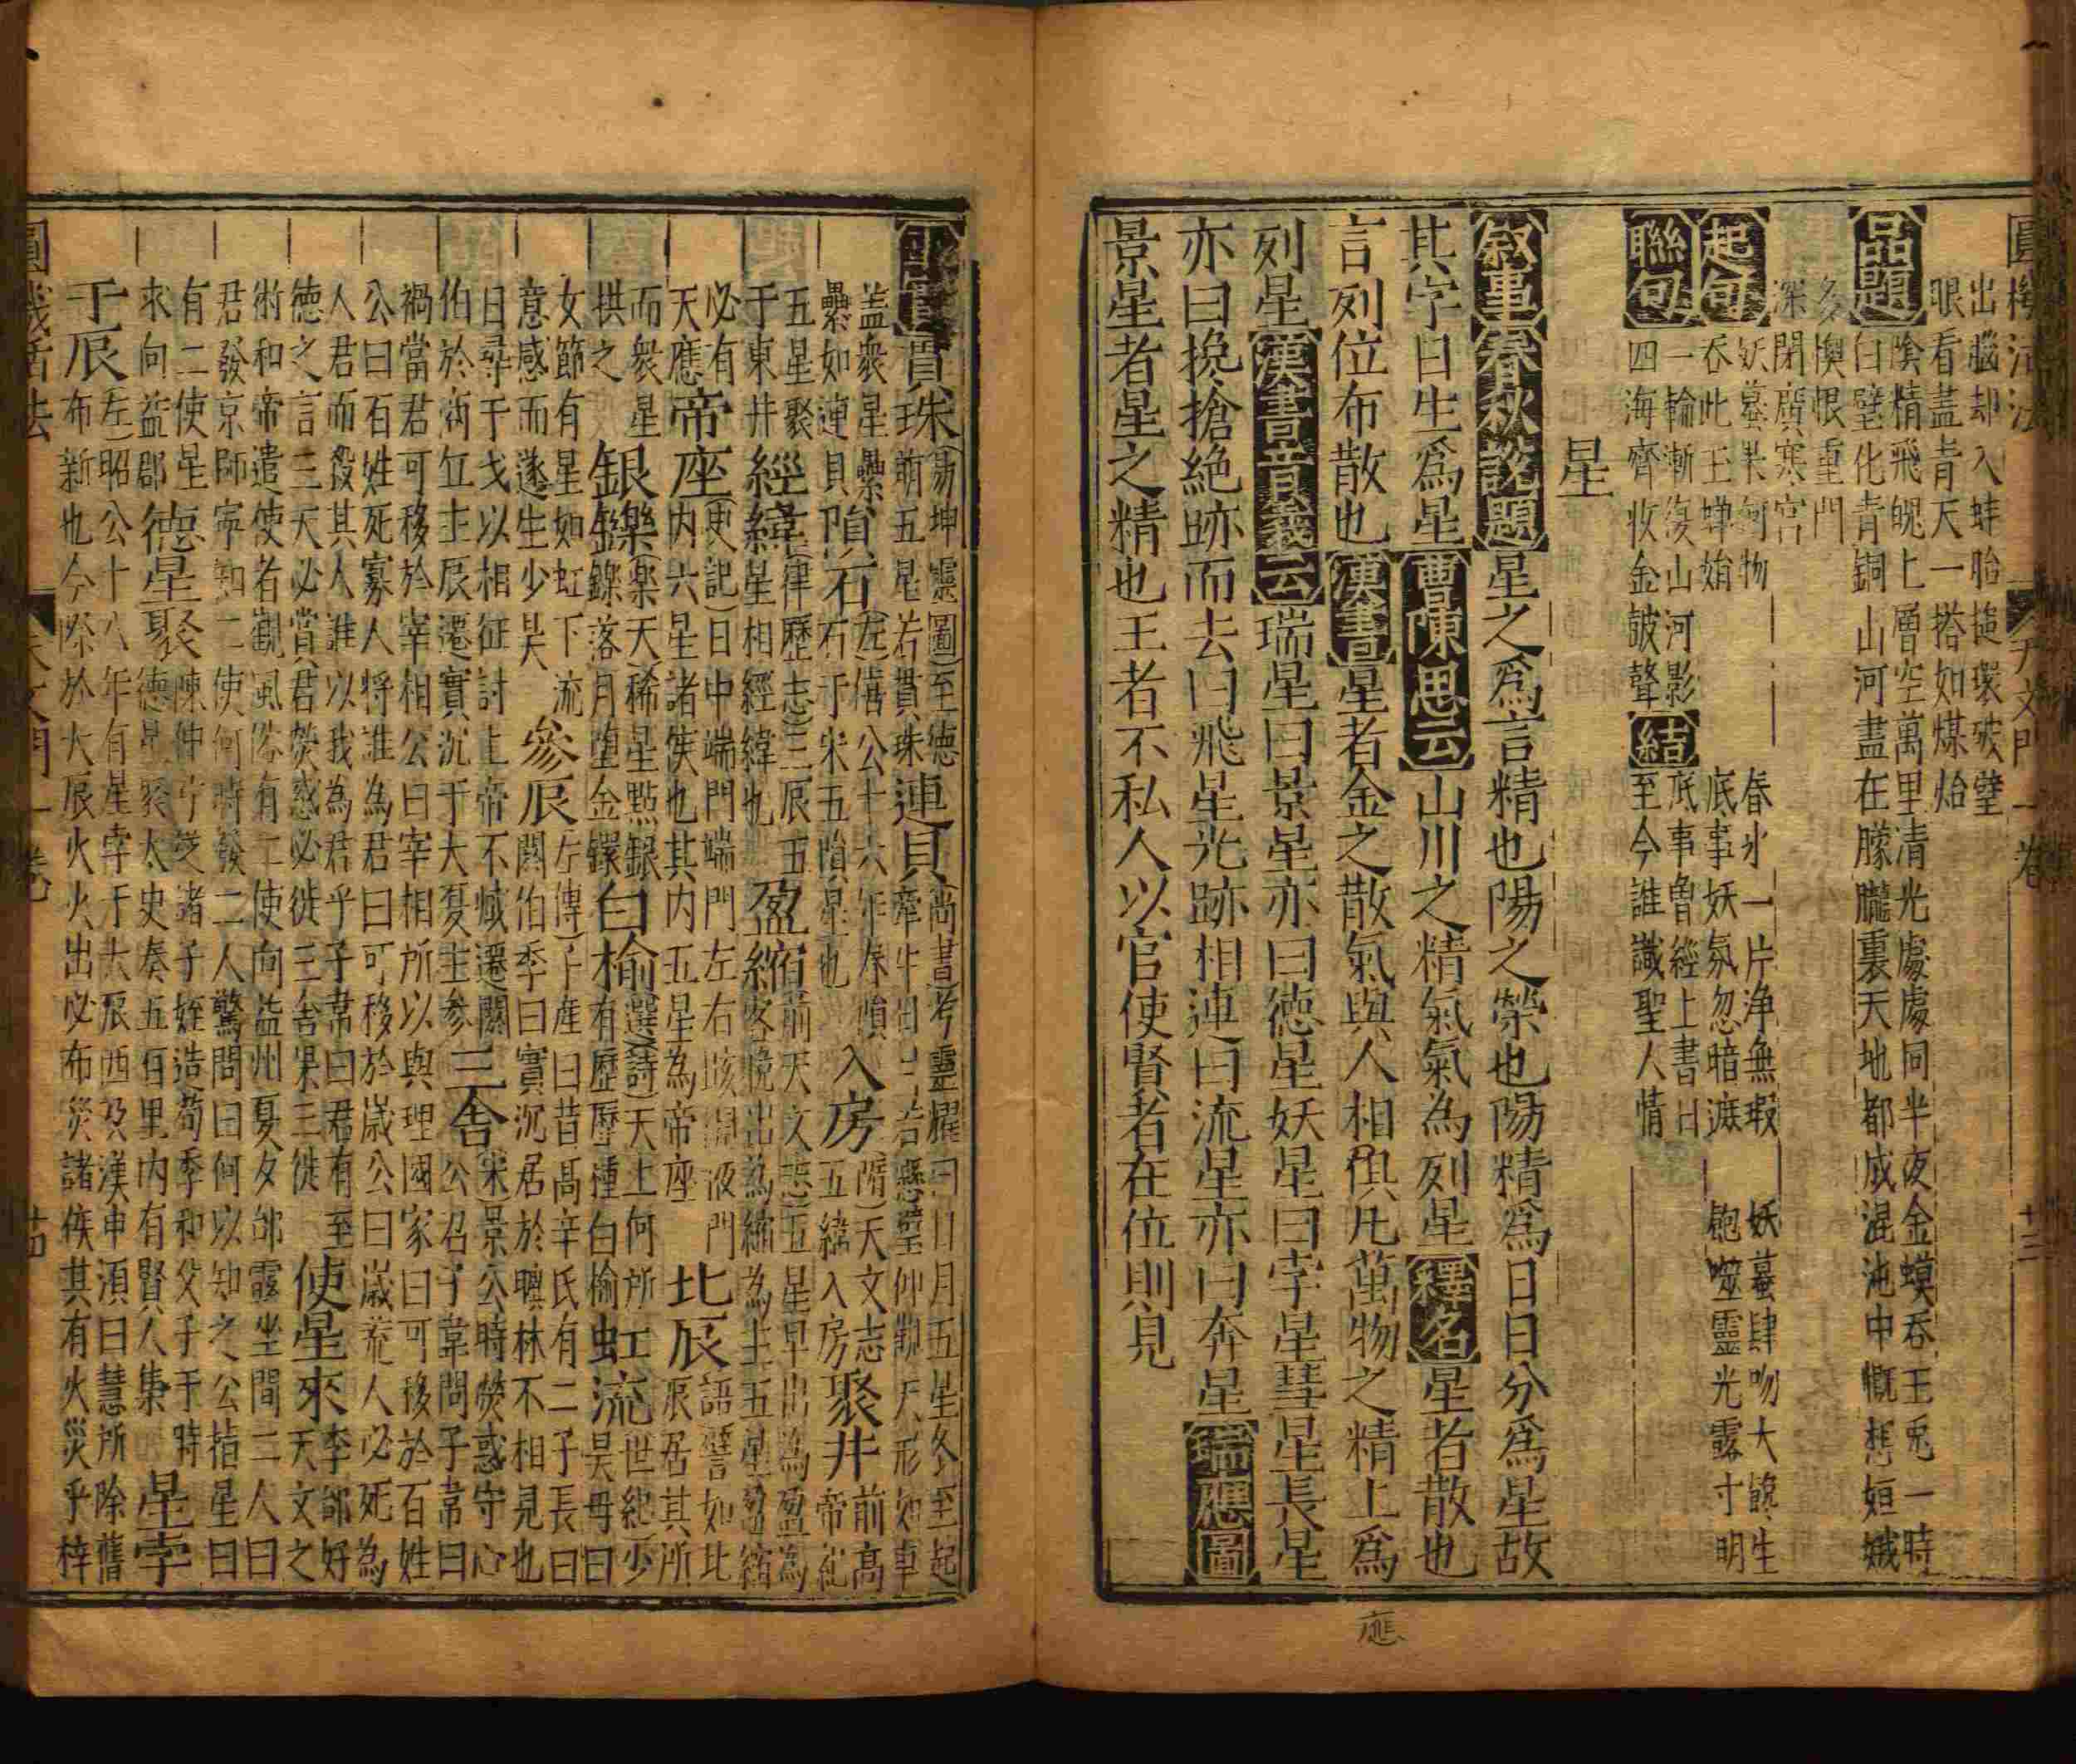 圓機活法 天文門一卷 十三
出腦却入蚌胎 搥環破璧
眼看盡青天一 搭如煤炲
品題
陰精飛魄上層空萬里清光處處同半夜金蟆吞玉兎一時
白璧化青銅山河盡在朦朧裏天地都成混沌中慨想姮娥
多懊恨重門
深閉廣寒宮
起句
妖蟇果何物 春氷一片浄無瑕 妖蟇肆吻大饞生
吞此玉嬋娟 底事妖氛忽暗遮 飽噬靈光露寸明
聯句
一輪漸復山河影
四海齊收金皷聲
結
底事魯經上書日
至今誰識聖人情
星
叙事 春秋說題 星之爲言精也陽之榮也陽精爲日日分爲星故
其字日生爲星 曹陳思云 山川之精氣氣為列星 釋名 星者散也
言列位布散也 漢書 星者金之散氣與人相俱凡萬物之精上爲
列星 漢書音義云 瑞星曰景星亦曰徳星妖星曰孛星彗星長星
亦曰攙搶絶跡而去曰飛星光跡相連曰流星亦曰奔星 瑞應圖
景星者星之精也王者不私人以官使賢者在位則見
應
貫珠(易坤靈圖)至徳之萌五星若貫珠 連貝(尚書考靈耀曰)日月五星冬至起牽牛日月若懸璧仰觀天形如車
盖衆星纍纍如連貝 隕石(左)僖公十六年春隕石于宋五隕星也 入房(隋)天文志五緯入房 聚井 前高帝紀
五星聚于東井 經緯(律歷志)三辰五星相經緯也 盈縮(前天文志)五星早出為盈盈為客晚出為縮縮為主五星盈縮
必有天應 帝座(史記)曰中端門端門左右掖門掖門内六星諸侯也其内五星為帝座 北辰 語譬如北辰居其所
而衆星拱之 銀鑠(樂天)稀星點銀鑠落月堕金鐶 白榆(選詩)天上何所有歷歷種白榆 虹流 世紀少昊母曰
女節有星如虹下流意感而遂生少昊 參辰(左傳)子産曰昔高辛氏有二子長曰閼伯季曰實沉居於曠林不相見也
日尋于戈以相征討上帝不臧遷閼伯於商丘主辰遷實沉于大夏主參 三舍(宋)景公時熒惑守心公召子韋問子韋曰
禍當君可移於宰相公曰宰相所以與理國家曰可移於百姓公曰百姓死寡人將誰為君曰可移於歲公曰歲荒人必死為
人君而殺其人誰以我為君乎子韋曰君有至徳之言三天必賞君熒惑必徙三舍果三徙 使星來 李郃好天文之
術和帝遣使者觀風俗有二使向益州夏夕郃露坐間二人曰君發京師寧知二使何時發二人驚問曰何以知之公指星曰
有二使星求向益郡 德星聚 陳仲弓從諸子姪造荀季和父子于時徳星聚太史奏五百里内有賢人集 星孛
于辰(左)昭公十八年有星孛于大辰西及漢申須曰慧所除舊布新也今除於大辰火火出必布災諸侯其有火災乎梓
圓機活法 天文門一卷 十四